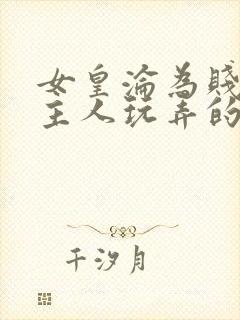 女皇淪為賤
主人玩弄的
千汐月